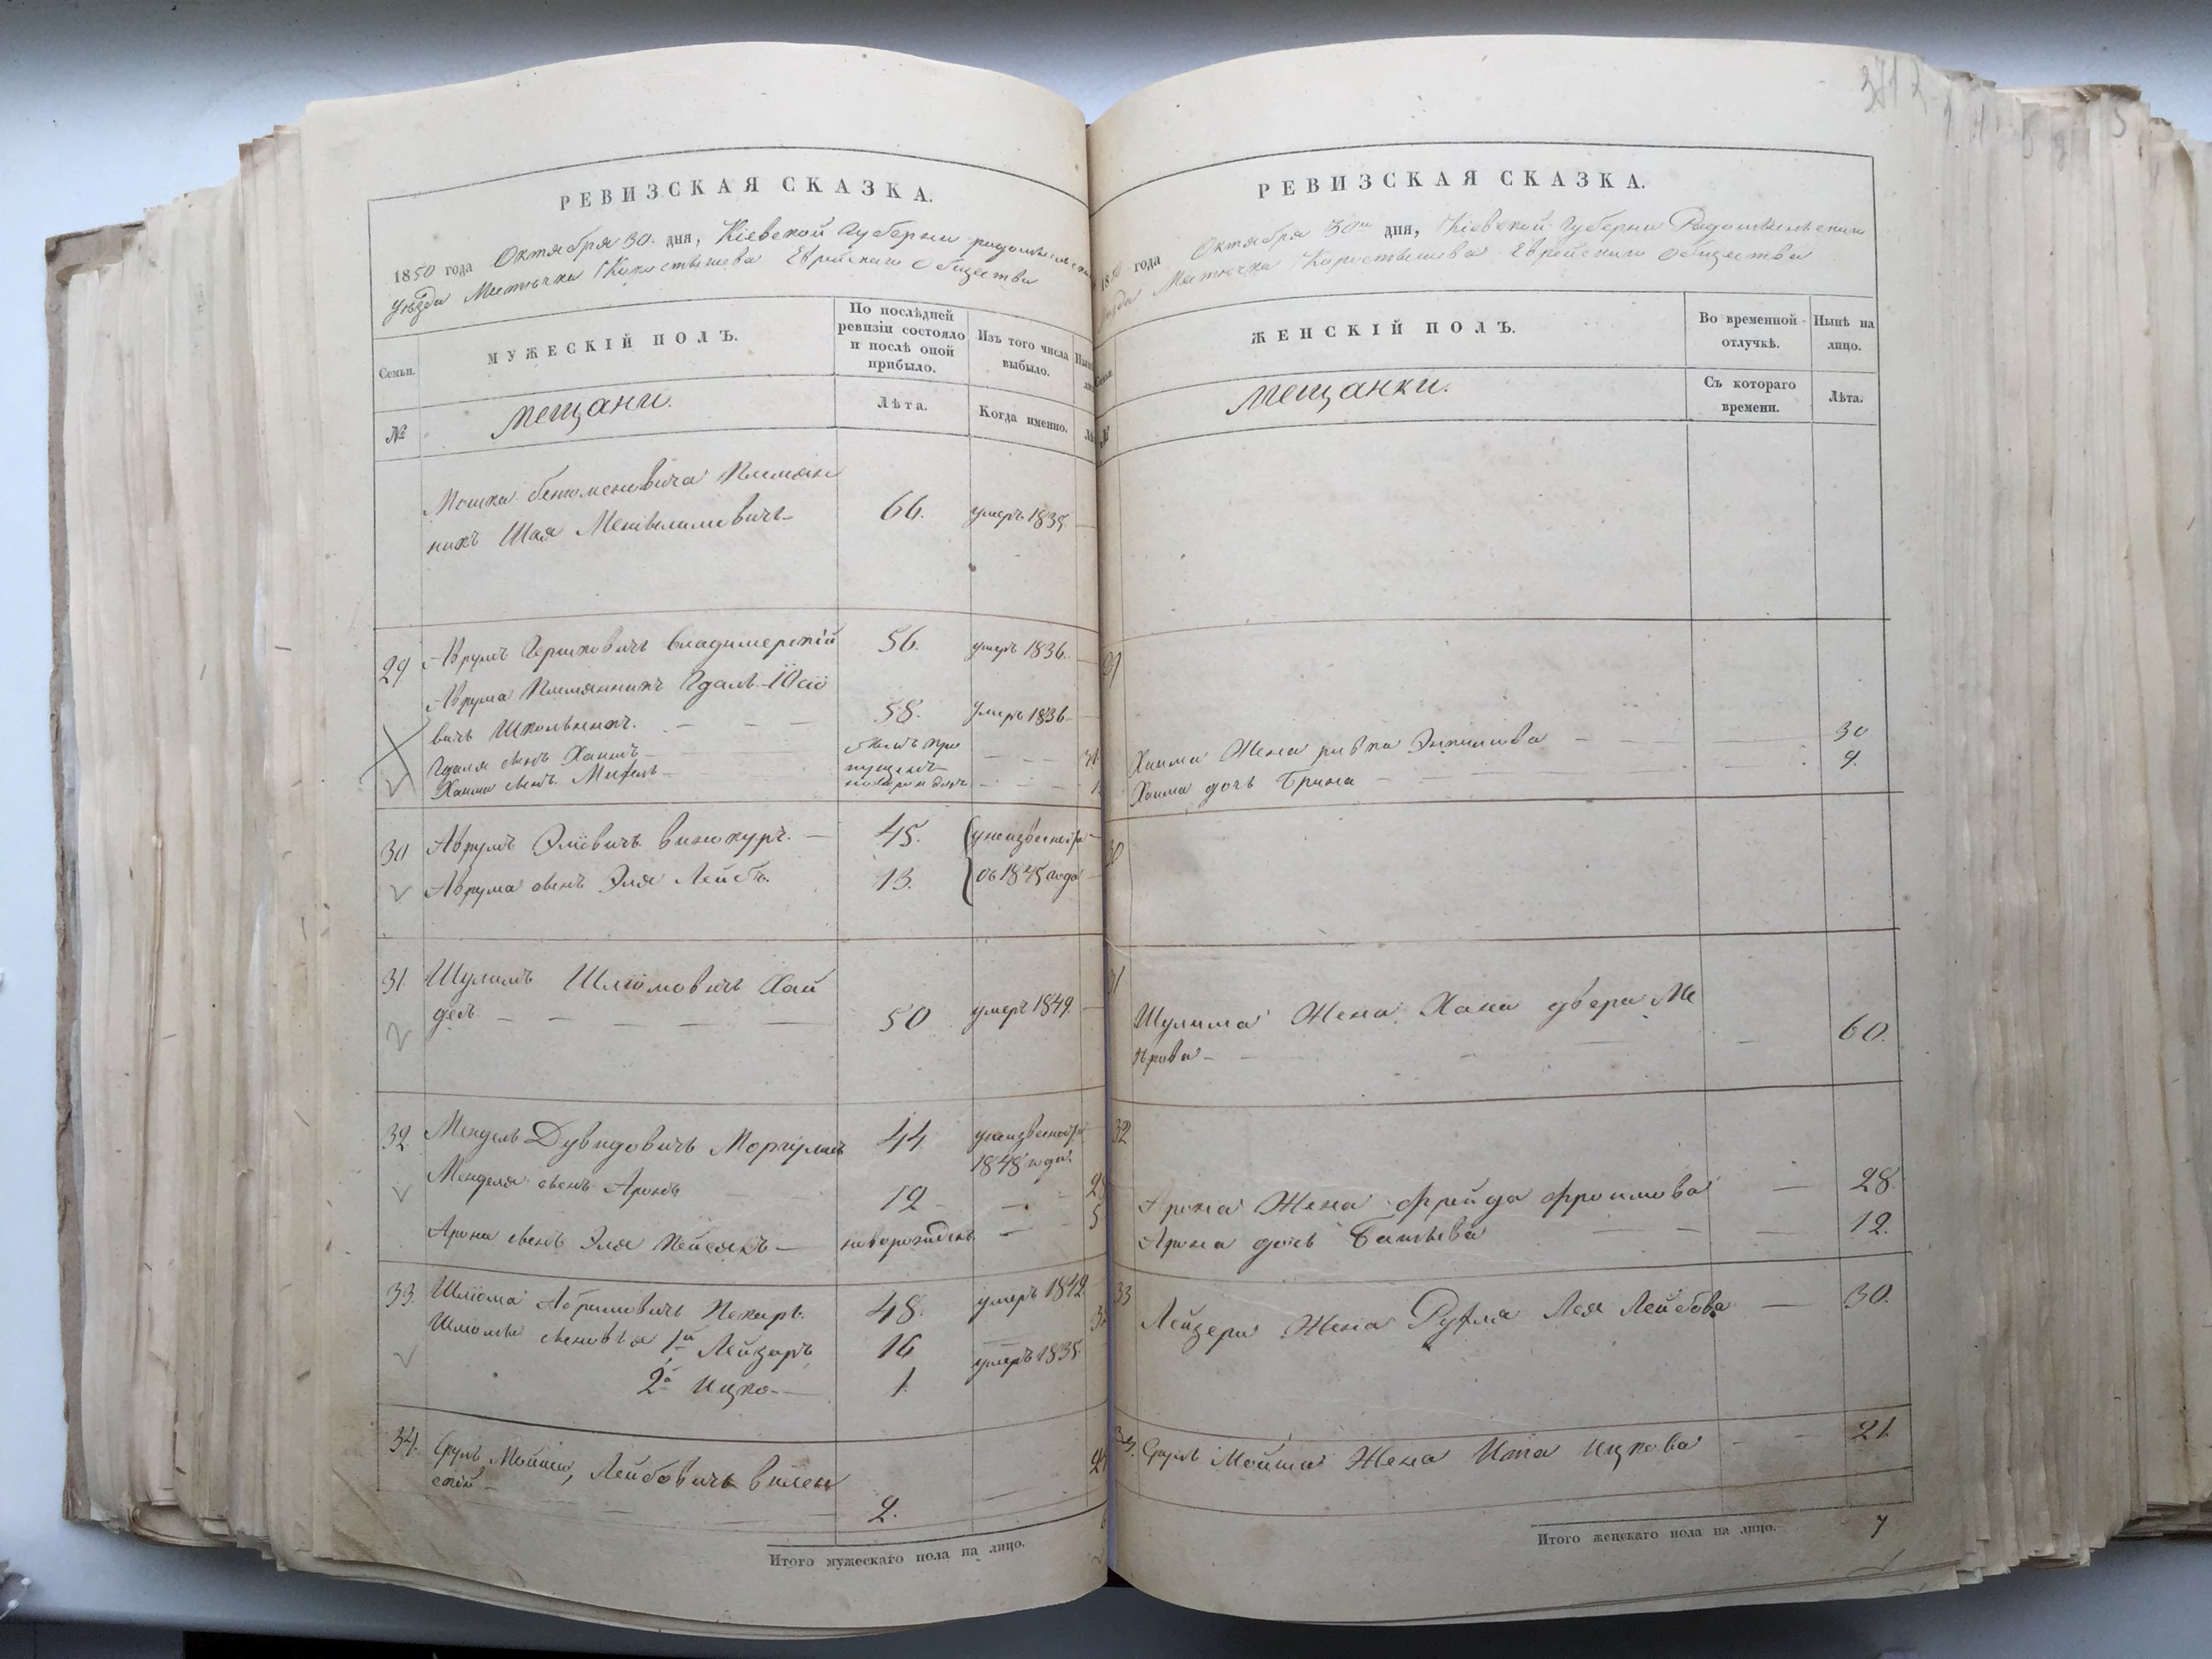 3712
РЕВИЗСКАЯ СКАЗКА.
1850 года Октября 30. дня, Кіевской Губерніи
уѣзда Мѣстечка Коростышева Еврейскаго Общества
Семьи.
МУЖЕСКІЙ ПОЛЪ.
По послѣдней ревизіи состояло и послѣ оной прибыло.
Изъ того числа выбыло.
№
Мещани.
Лѣта.
Когда именно.
Мошка Племян
никъ Шая 66. умеръ 1835
29 Аврумъ Гершковичъ Владимерскій 56. умеръ 1836.
Аврума Племянникъ Гдаль Юсіо
вичъ Школьникъ. 58. Умеръ 1836
Гдаля сынъ Хаимъ былъ про
пущенъ
Хаима сынъ
30 Аврумъ Эліовичъ Винокуръ. 45.
Аврума сынъ Эля Лейбъ. 13. съ 1845 года
31. Шулимъ Шліомовичъ Хай
50 умеръ 1849.
32 Мендель Дувидовичъ Моргулисъ 44
1848 года.
Менделя сынъ Аронъ 12
Арона сынъ Эля Пейсахъ новорожденъ 5
33. Шліома Абрамовичъ Пекаръ. 48. умеръ 1842
Шліомы сыновья 1й Лейзаръ 16
2й Ицко 1 умеръ 1835
34. Сруль Мойша, Лейбовичъ Вилен
скій 2.
Итого мужескаго пола на лицо.
РЕВИЗСКАЯ СКАЗКА.
1850 года Октября 30го дня, Кіевской Губерніи Радомысльскаго
уѣзда Мѣстечка Коростышева Еврейскаго Общества
ЖЕНСКІЙ ПОЛЪ.
Во временной отлучкѣ.
Нынѣ на лицо.
№
Мещанки.
Съ котораго времени.
Лѣта.
29
Хаима Жена Ривка 30
Хаима дочь Брина 9.
30
31
Шулима Жена Хана Двера Ме
ерова 60.
32
Арона Жена Фрейда Фроимова 28
Арона дочь Батшева 12.
33
Лейзера Жена Рухля Лея Лейбова 30.
34. Сруль Мойша Жена Ита Ицкова 21.
Итого женскаго пола на лицо. 7